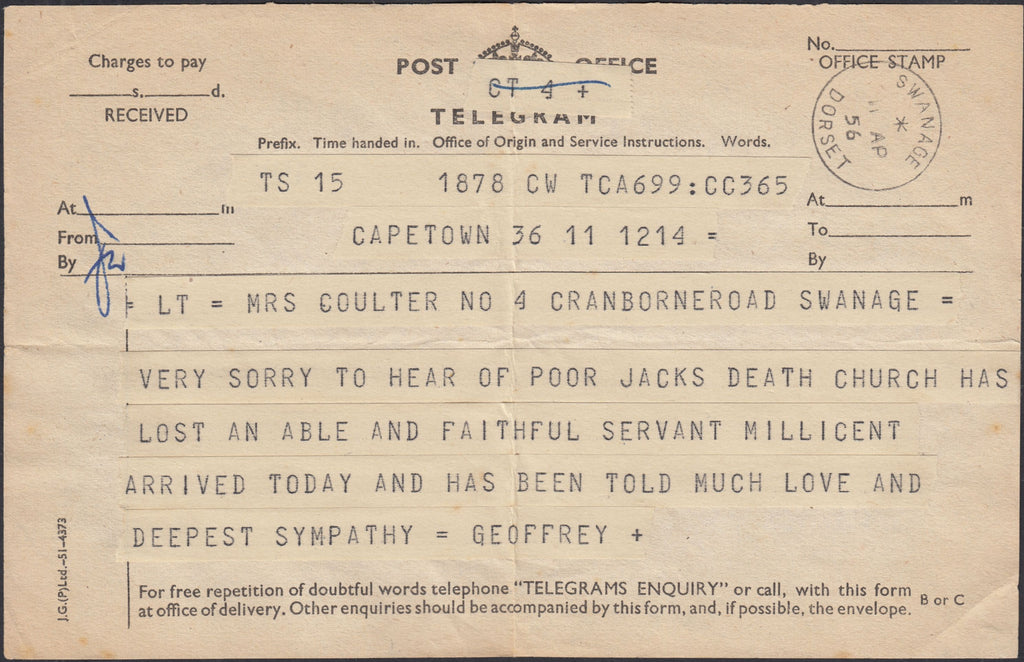 Charges to pay
____s.____d.
RECEIVED
POST OFFICE
CT 4 +
TELEGRAM
Prefix. Time handed in. Office of Origin and Service Instructions. Words.
No.
OFFICE STAMP
SWANAGE
*
11 AP
56
DORSET
TS 15 1878 CW TCA699:CC365
At____m
From
By
CAPETOWN 36 11 1214 =
At____m
To
By
= LT = MRS COULTER NO 4 CRANBORNEROAD SWANAGE =
VERY SORRY TO HEAR OF POOR JACKS DEATH CHURCH HAS
LOST AN ABLE AND FAITHFUL SERVANT MILLICENT
ARRIVED TODAY AND HAS BEEN TOLD MUCH LOVE AND
DEEPEST SYMPATHY = GEOFFREY +
For free repetition of doubtful words telephone "TELEGRAMS ENQUIRY" or call, with this form
at office of delivery. Other enquiries should be accompanied by this form, and, if possible, the envelope.
B or C
J.G.(P)Ltd.-51-4373